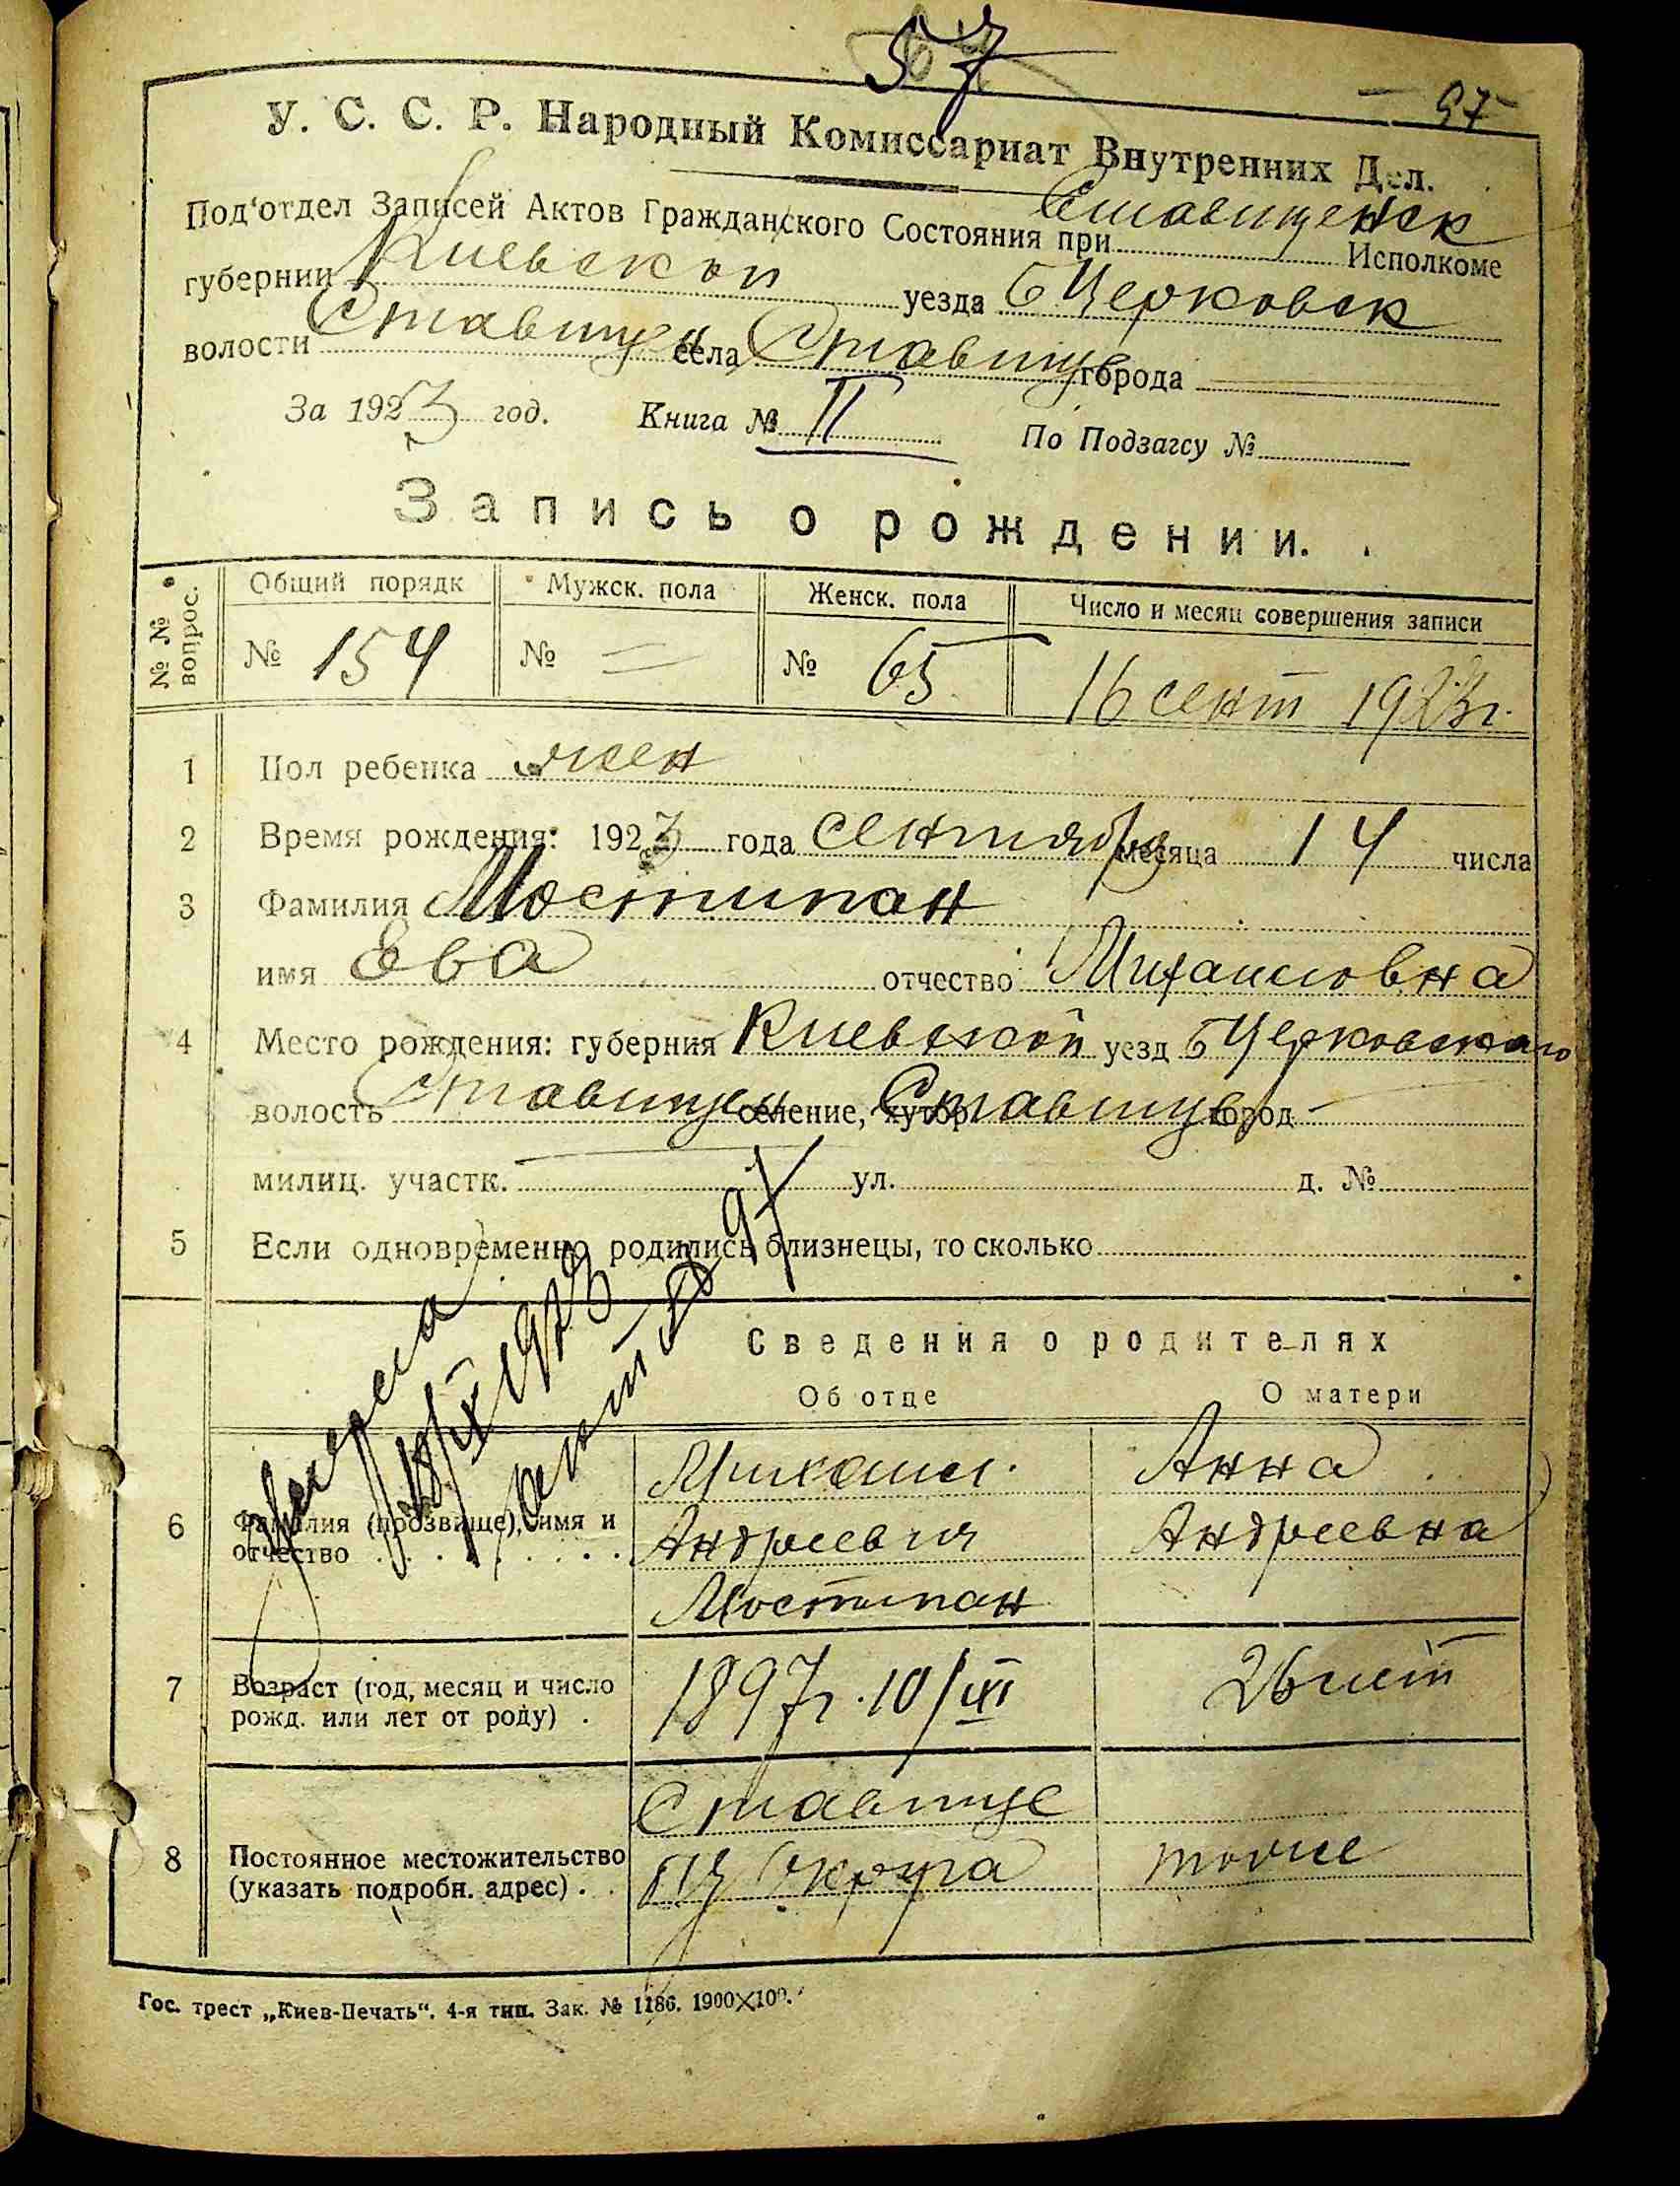 57
57
У. С. С. Р. Народный Комиссариат Внутренних Дел.
Под'отдел Записей Актов Гражданского Состояния при Ставищенск Исполкоме
губернии Киевской уезда БЦерковск
волости Ставищен села Ставище города —
За 1923 год. Книга № II По Подзагсу №
Запись о рождении.
№ № вопрос. Общий порядк Мужск. пола Женск. пола Число и месяц совершения записи
№ 154 № = № 65 16 сент 1923г.
1 Пол ребенка жен
2 Время рождения: 1923 года сентября месяца 14 числа
3 Фамилия Мостипан
имя Ева отчество Михаиловна
4 Место рождения: губерния Киевской уезд БЦерковского
волость Ставищен селение, хутор Ставище город —
милиц. участк. ул. д. №
5 Если одновременно родились близнецы, то сколько
Умерла
18/IX 1923
Сведения о родителях
Об отце О матери
6 Фамилия (прозвище), имя и отчество
Михаил Анна
Андреевич Андреевна
Мостипан
7 Возраст (год, месяц и число рожд. или лет от роду) 1897г. 10/XI 26 лет
8 Постоянное местожительство (указать подробн. адрес)
Ставище
БЦ Округа тоже
Гос. трест „Киев-Печать". 4-я тип. Зак. № 1186. 1900×100.